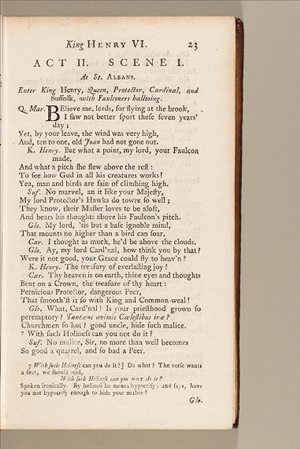 King HENRY VI. 23
ACT II. SCENE I.
At St. ALBANS.
Enter King Henry, Queen, Protector, Cardinal, and
Suffolk, with Faulconers hallooing.
Q. Mar. BElieve me, lords, for flying at the brook,
I saw not better sport these seven years'
day;
Yet, by your leave, the wind was very high,
And, ten to one, old Joan had not gone out.
K. Henry. But what a point, my lord, your Faulcon
made,
And what a pitch she flew above the rest:
To see how God in all his creatures works!
Yea, man and birds are fain of climbing high.
Suf. No marvel, an it like your Majesty,
My lord Protector's Hawks do towre so well;
They know, their Master loves to be aloft,
And bears his thoughts above his Faulcon's pitch.
Glo. My lord, 'tis but a base ignoble mind,
That mounts no higher than a bird can soar.
Car. I thought as much, he'd be above the clouds.
Glo. Ay, my lord Card'nal, how think you by that?
Were it not good, your Grace could fly to heav'n?
K. Henry. The treasury of everlasting joy!
Car. Thy heaven is on earth, thine eyes and thoughts
Bent on a Crown, the treasure of thy heart:
Pernicious Protector, dangerous Peer,
That smooth'st it so with King and Common-weal!
Glo. What, Card'nal! Is your priesthood grown so
peremptory? Tantæne animis Cælestibus iræ?
Churchmen so hot? good uncle, hide such malice.
7 With such Holiness can you not do it?
Suf. No malice, Sir, no more than well becomes
So good a quarrel, and so bad a Peer.
7 With such Holiness can you do it?] Do what? The verse wants
a foot, we should read,
With such Holiness can you NOT do it?
Spoken ironically. By holiness he means hypocrisy: and says, have
you not hypocrisy enough to hide your malice?
Glo.